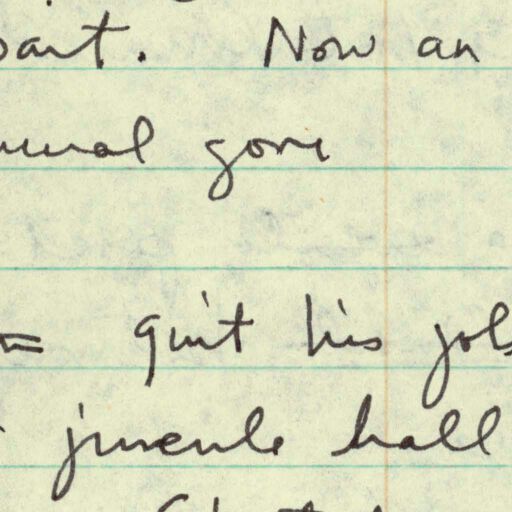 part. Now an
gone
= quit his job
juvenile hall